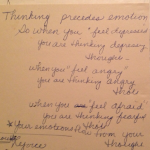 Thinking precedes emotion
So when you "feel depressed
you are thinking depressing
thoughts.
when you "feel angry
you are thinking angry
thots
when you "feel afraid
you are thinking fearful
thots
*Your emotions from your
thought